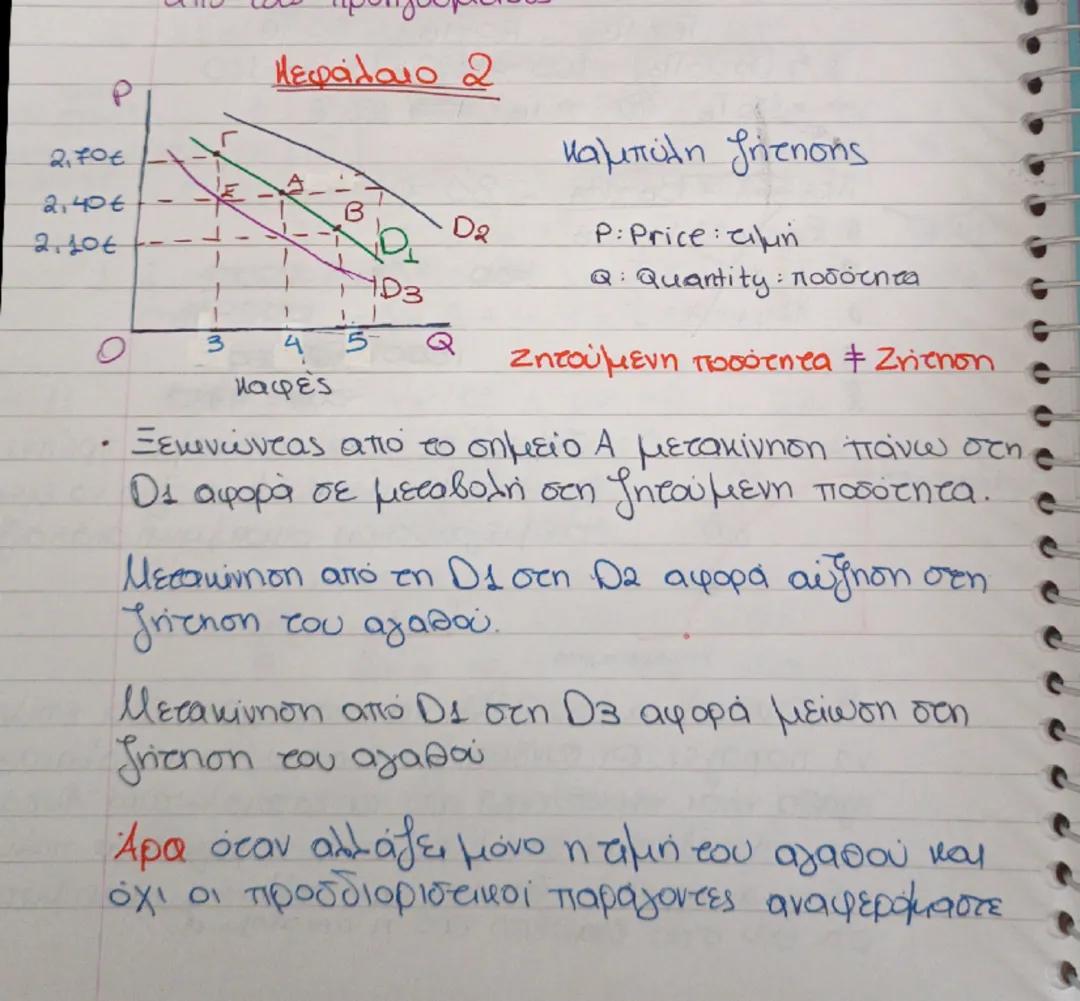 από τους προηγούμενους
Κεφάλαιο 2
P
Γ
2,70€
Καμπύλη ζήτησης
2,40€
E
A
B
D2
P: Price: τιμή
2,10€
D1
D3
Q: Quantity: ποσότητα
O
3
4
5
Q
Ζητούμενη ποσότητα ≠ Ζήτηση
καφές
• Ξεκινώντας από το σημείο Α μετακίνηση πάνω στη
D1 αφορά σε μεταβολή στη ζητούμενη ποσότητα.
Μετακίνηση από τη D1 στη D2 αφορά αύξηση στη
ζήτηση του αγαθού.
Μετακίνηση από D1 στη D3 αφορά μείωση στη
ζήτηση του αγαθού
Άρα όταν αλλάξει μόνο η τιμή του αγαθού και
όχι οι προσδιοριστικοί παράγοντες αναφερόμαστε